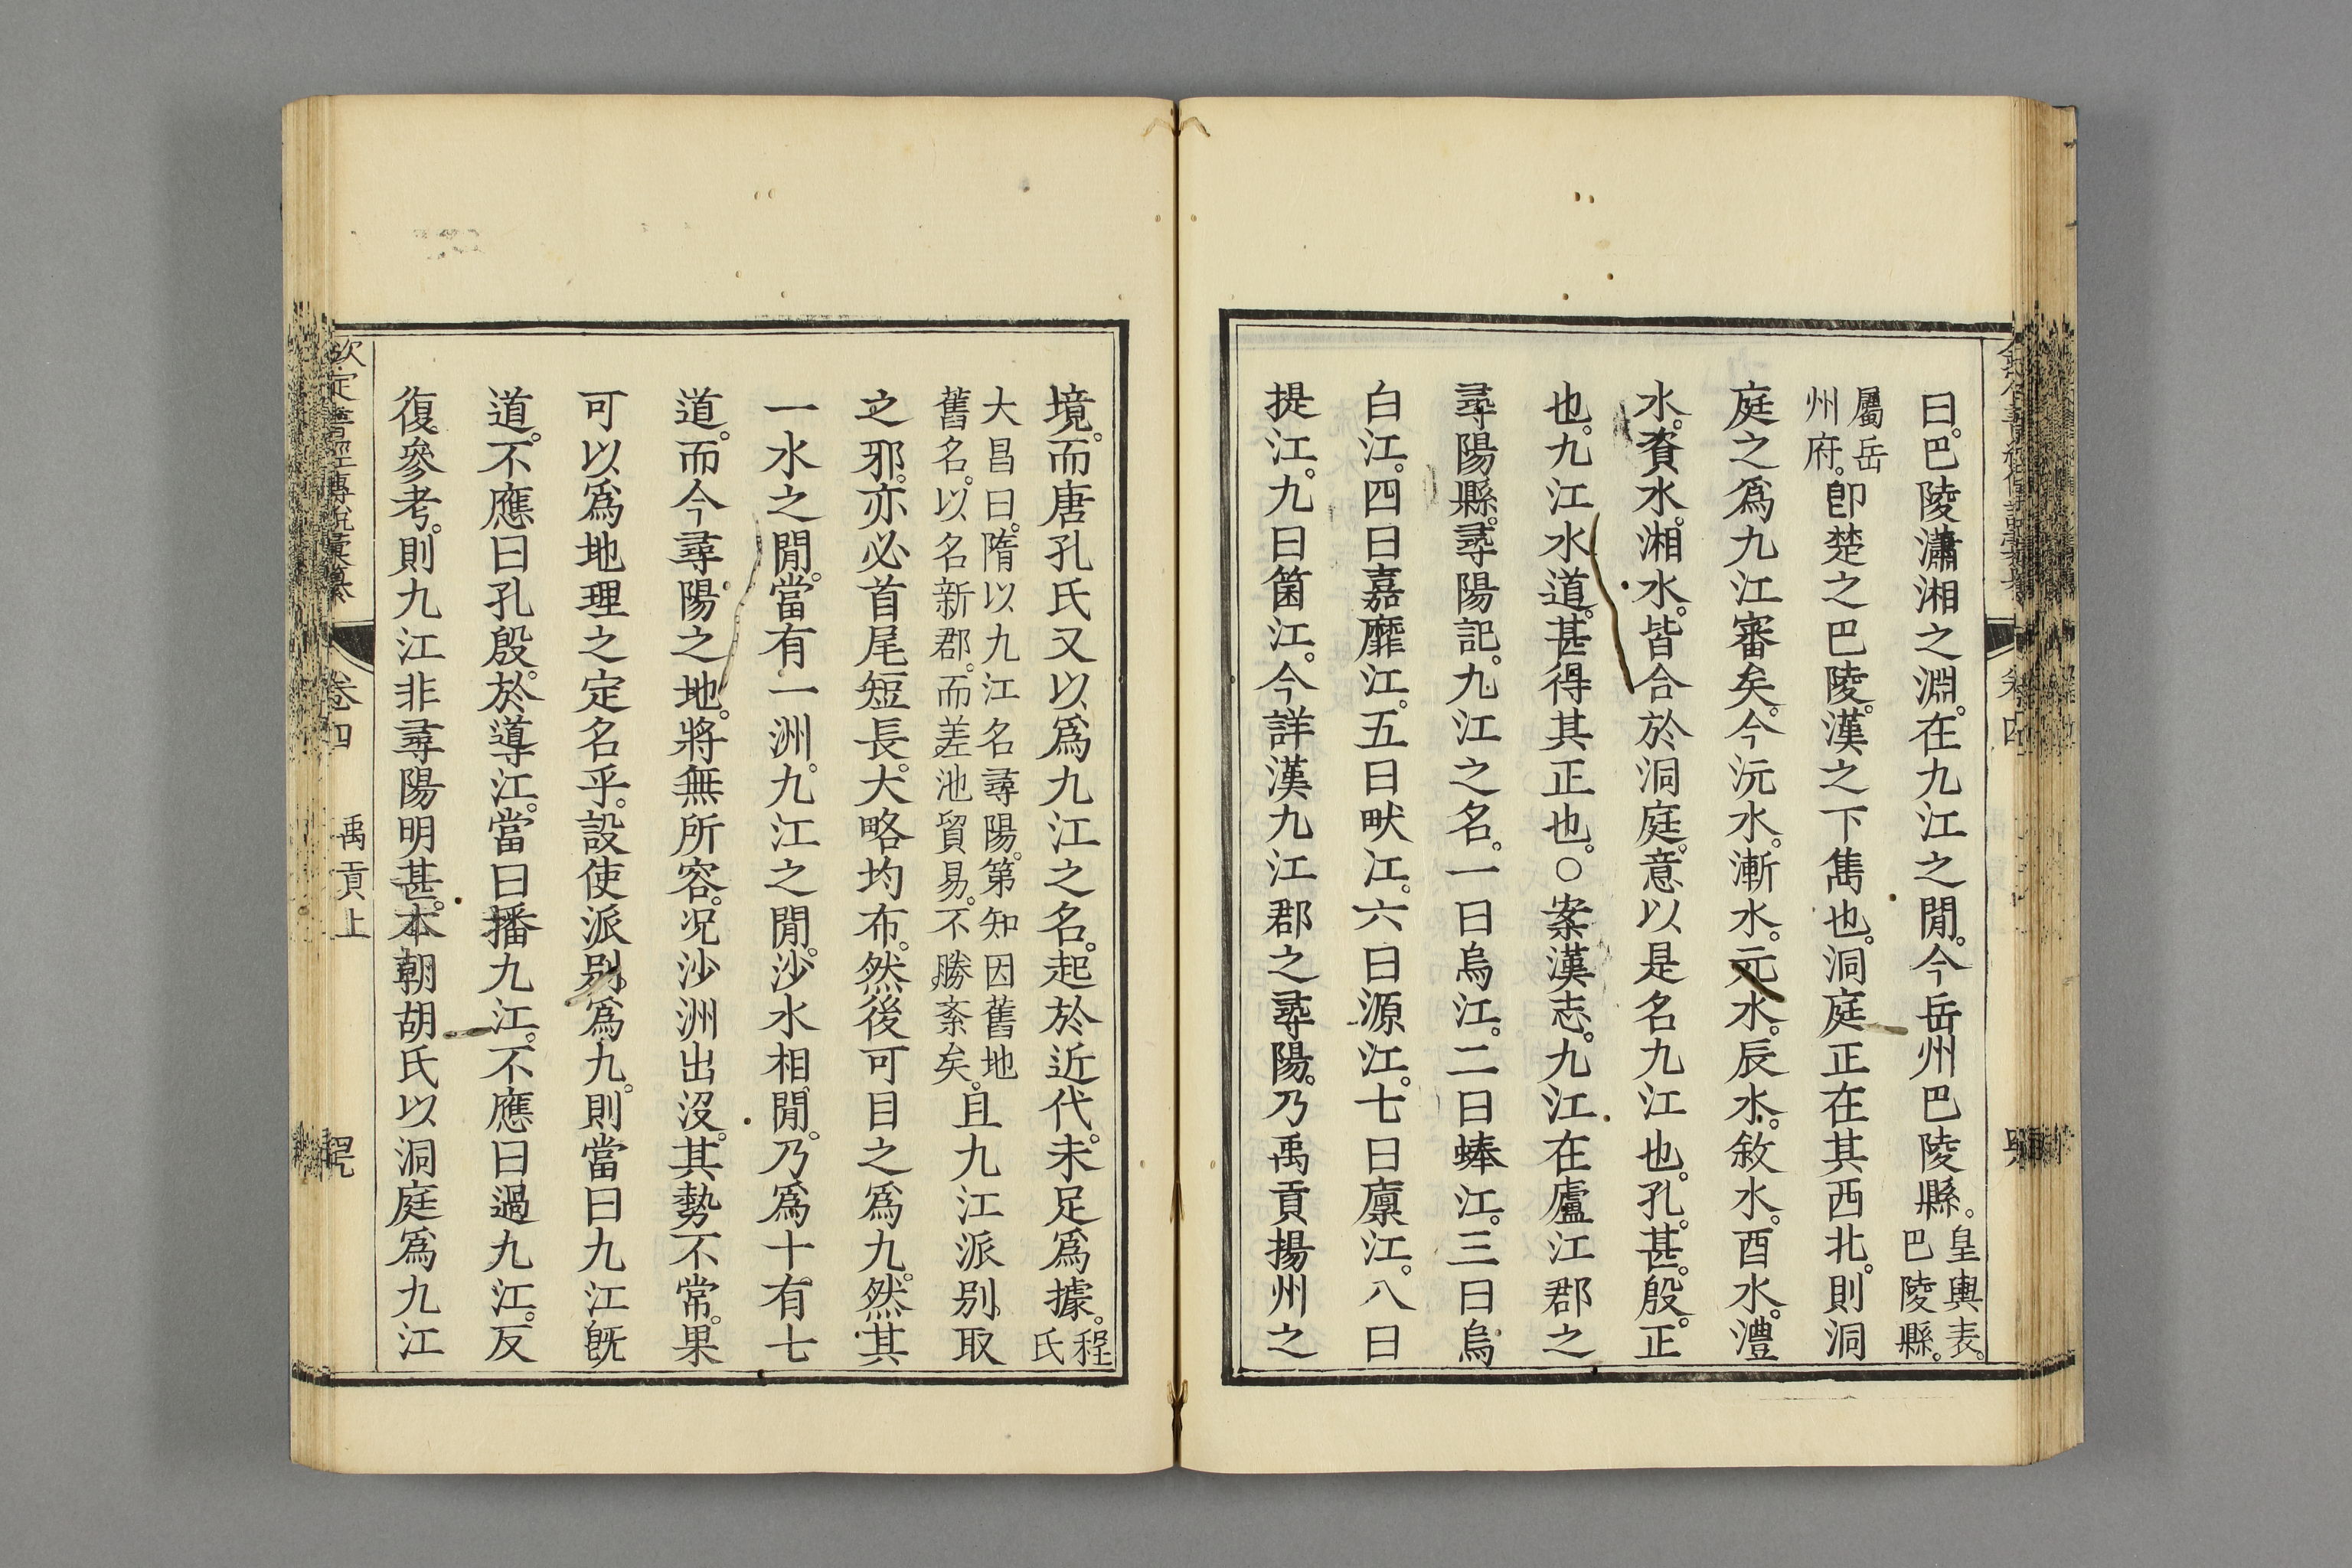 曰。巴陵瀟湘之淵。在九江之閒。今岳州巴陵縣。皇輿表。巴陵縣。
屬岳州府。卽楚之巴陵。漢之下雋也。洞庭正在其西北。則洞
庭之爲九江審矣。今沅水。漸水。元水。辰水。敘水。酉水。澧
水。資水。湘水。皆合於洞庭。意以是名九江也。孔。甚。殷。正
也。九江水道。甚得其正也。○案漢志。九江在廬江郡之
尋陽縣。尋陽記。九江之名。一曰烏江。二曰蜯江。三曰烏
白江。四曰嘉靡江。五曰畎江。六曰源江。七曰廩江。八曰
提江。九曰箘江。今詳漢九江郡之尋陽。乃禹貢揚州之
境。而唐孔氏又以爲九江之名。起於近代。未足爲據。程氏
大昌曰。隋以九江名尋陽。第知因舊地舊名。以名新郡。而差池貿易。不勝紊矣。且九江派別。取
之邪。亦必首尾短長。大略均布。然後可目之爲九。然其
一水之閒。當有一洲。九江之閒。沙水相閒。乃爲十有七
道。而今尋陽之地。將無所容。況沙洲出沒。其勢不常。果
可以爲地理之定名乎。設使派別爲九。則當曰九江旣
道。不應曰孔殷。於導江。當曰播九江。不應曰過九江。反
復參考。則九江非尋陽明甚。本朝胡氏以洞庭爲九江
欽定書經傳說彙纂
卷四
禹貢上